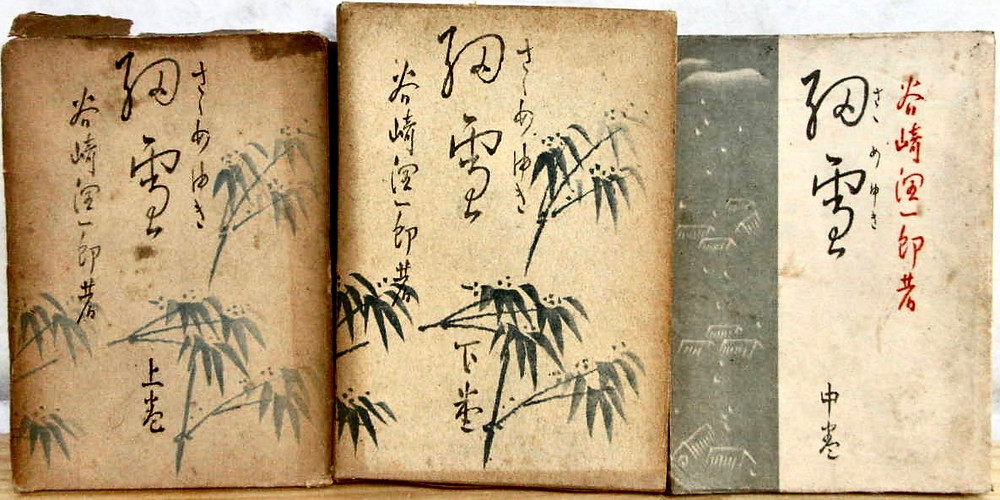 さゝめゆき
細雪
谷崎潤一郎著
上巻
さゝめゆき
細雪
谷崎潤一郎著
下巻
谷崎潤一郎著
さゝめゆき
細雪
中巻